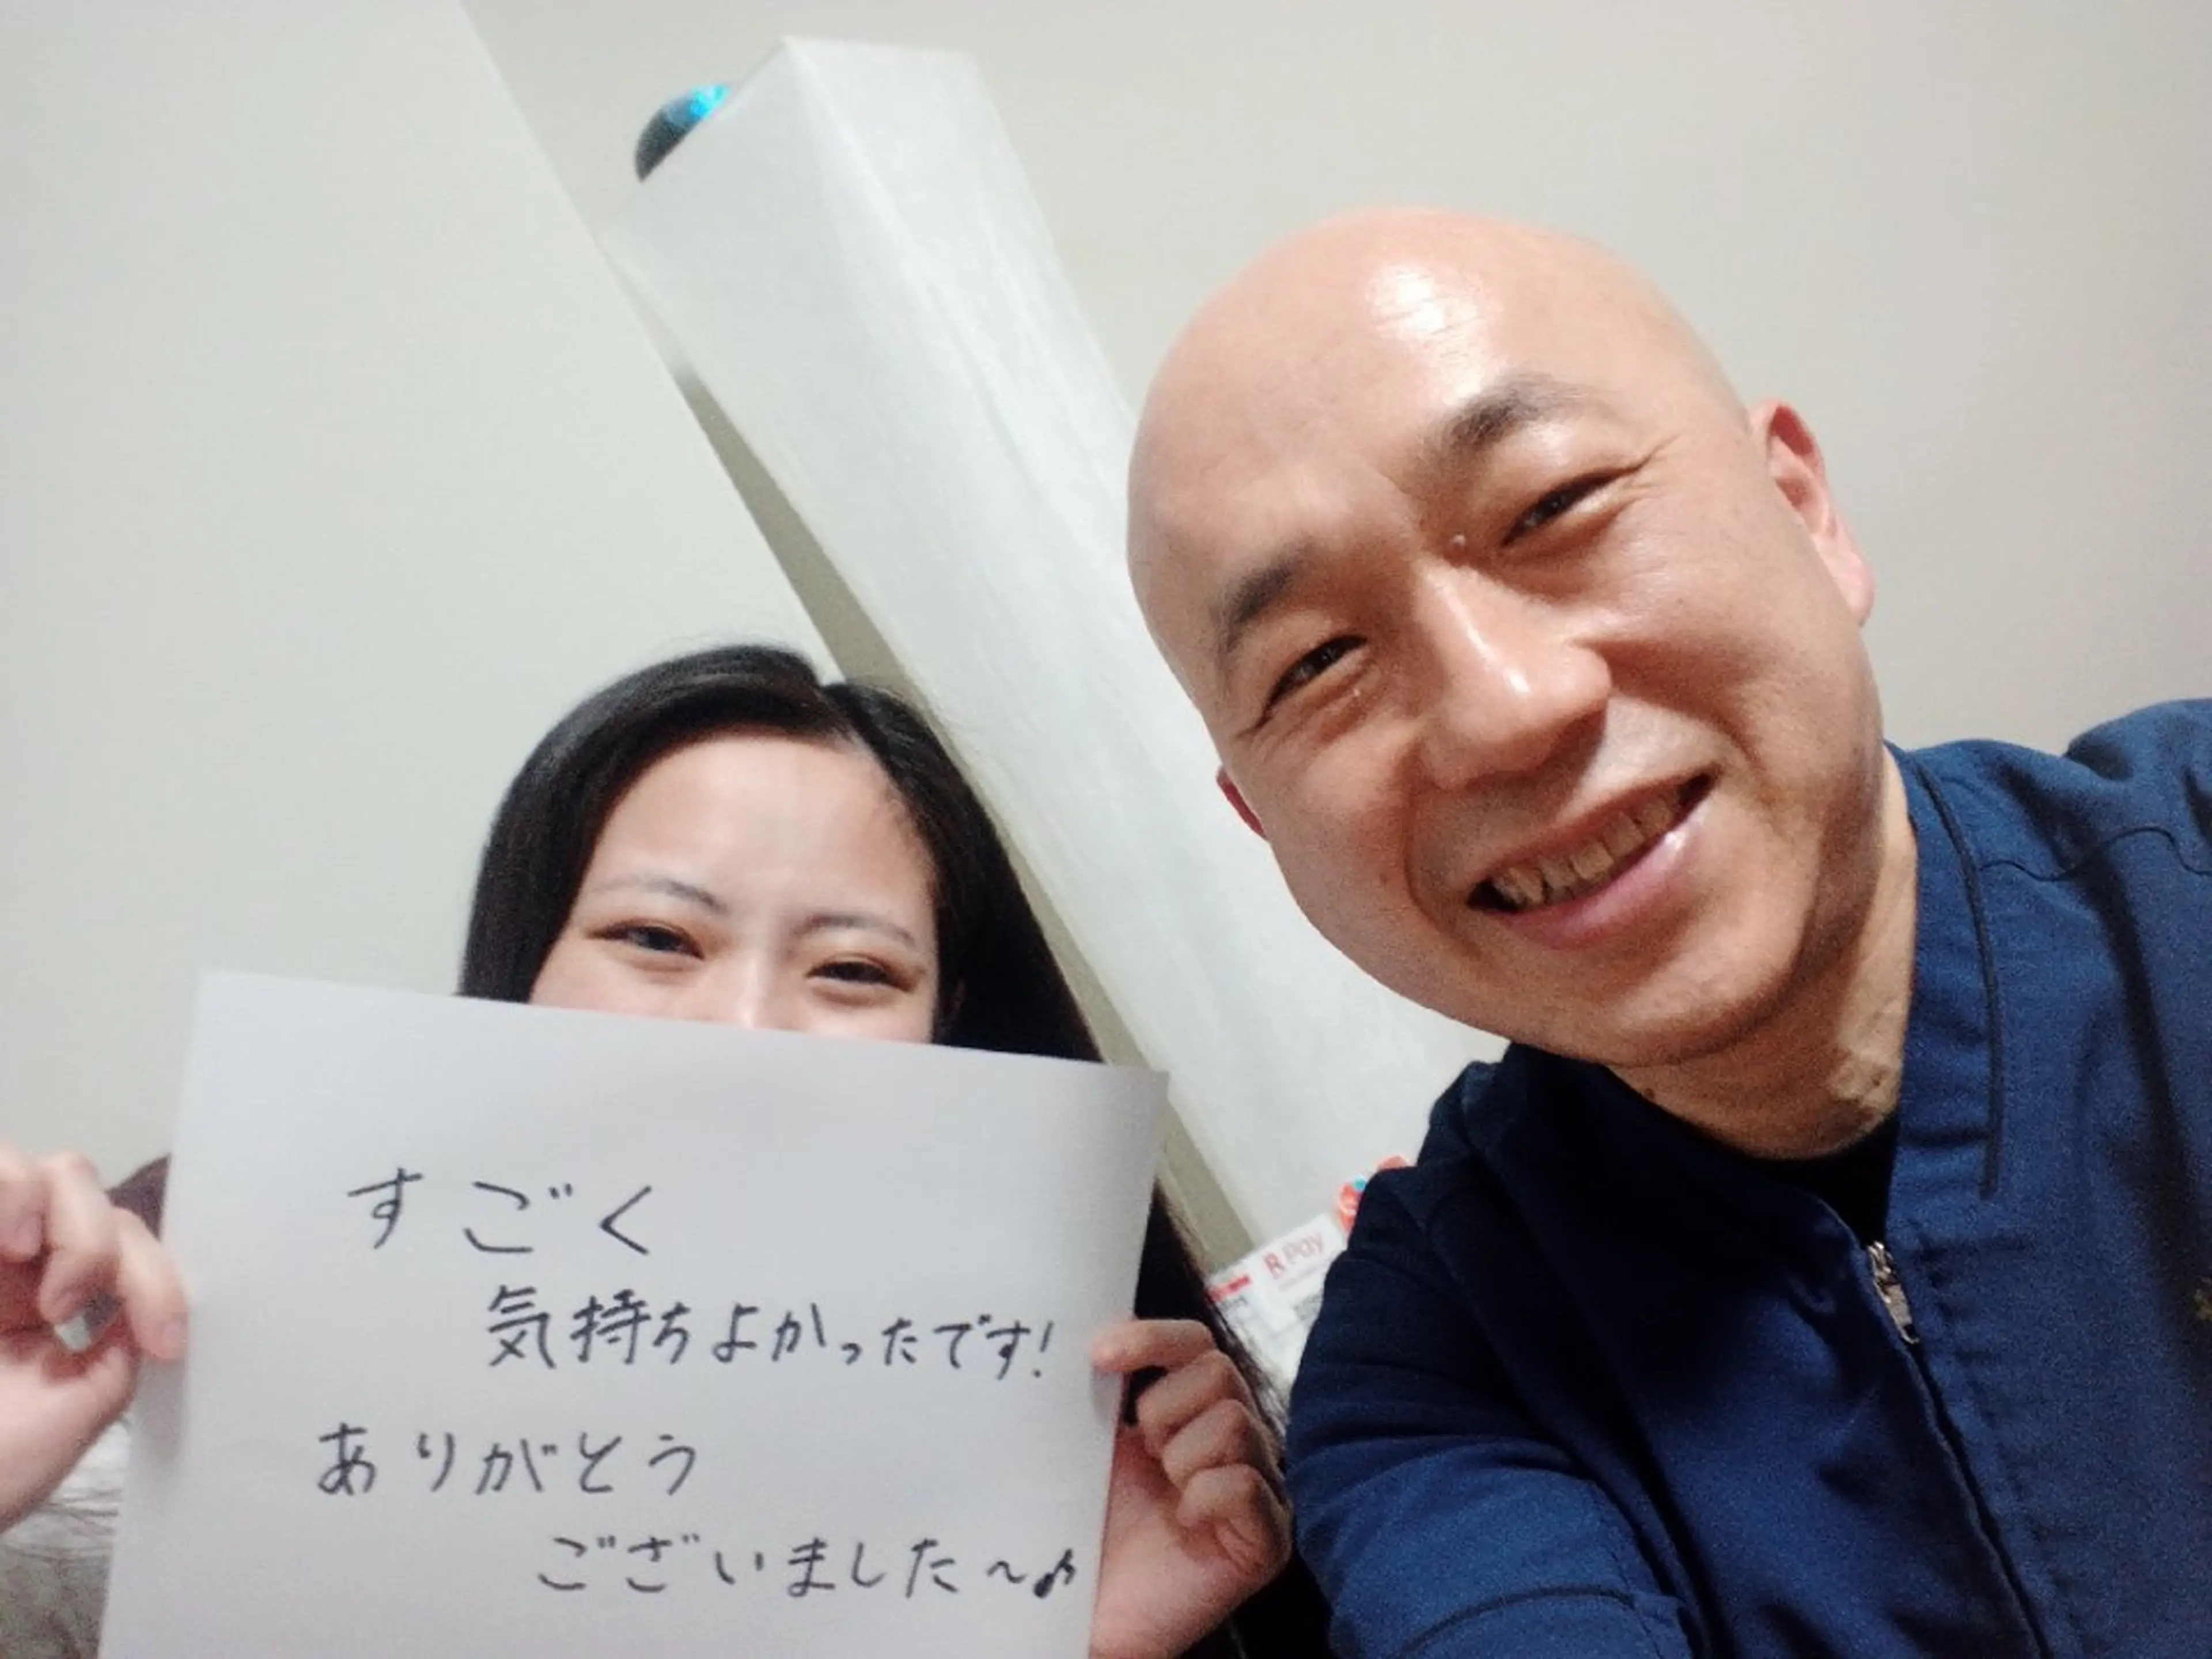 すごく
気持ちよかったです!
ありがとう
ございました〜♪
R Pay